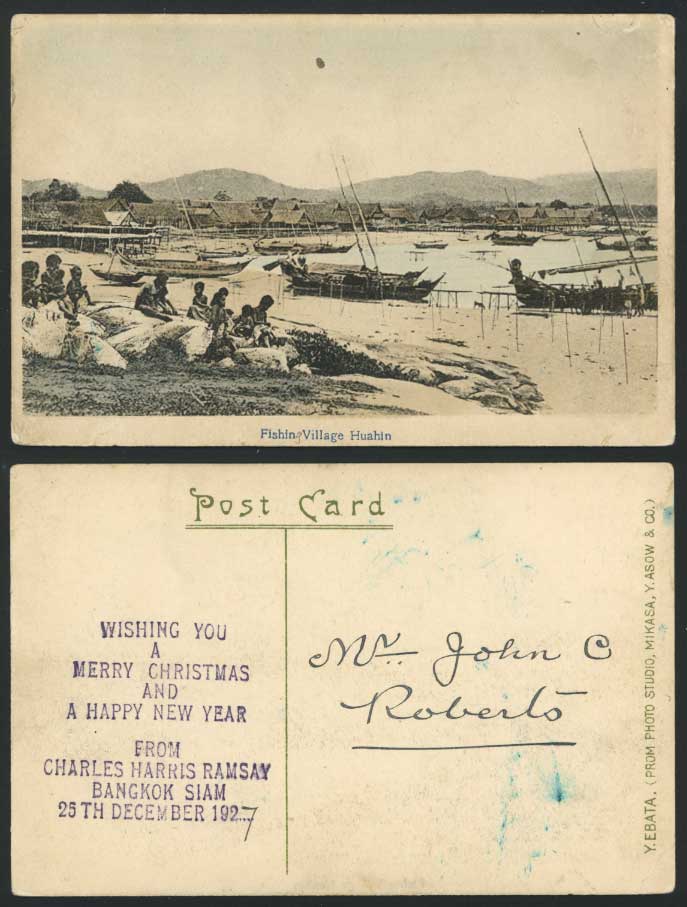 Fishing Village Huahin
Post Card
WISHING YOU
A
MERRY CHRISTMAS
AND
A HAPPY NEW YEAR
FROM
CHARLES HARRIS RAMSAY
BANGKOK SIAM
25TH DECEMBER 192...7
Mr. John C
Roberts
Y. EBATA, (PROM PHOTO STUDIO, MIKASA, Y. ASOW & CO.)